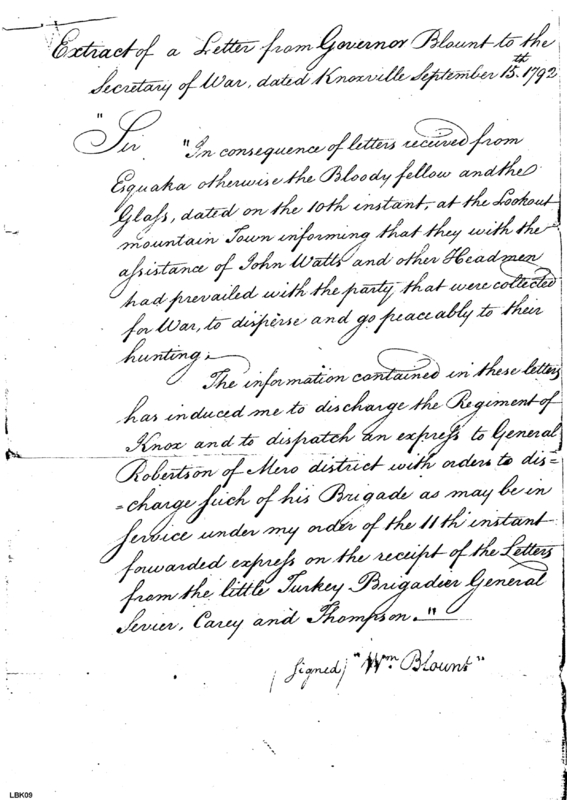 Extract of a Letter from Governor Blount to the
Secretary of War, dated Knoxville September 15th. 1792
"Sir "In consequence of letters received from
Esquaka otherwise the Bloody fellow and the
Glass, dated on the 10th instant, at the Lookout
mountain Town informing that they with the
assistance of John Watts and other Headmen
had prevailed with the party that were collected
for War, to disperse and go peaceably to their
hunting.
The information contained in these letters
has induced me to discharge the Regiment of
Knox and to dispatch an express to General
Robertson of Mero district with orders to dis=
=charge such of his Brigade as may be in
Service under my order of the 11th instant
forwarded express on the receipt of the Letters
from the little Turkey Brigadeer General
Sevier, Carey and Thompson."
(signed) "Wm Blount"
LBK09